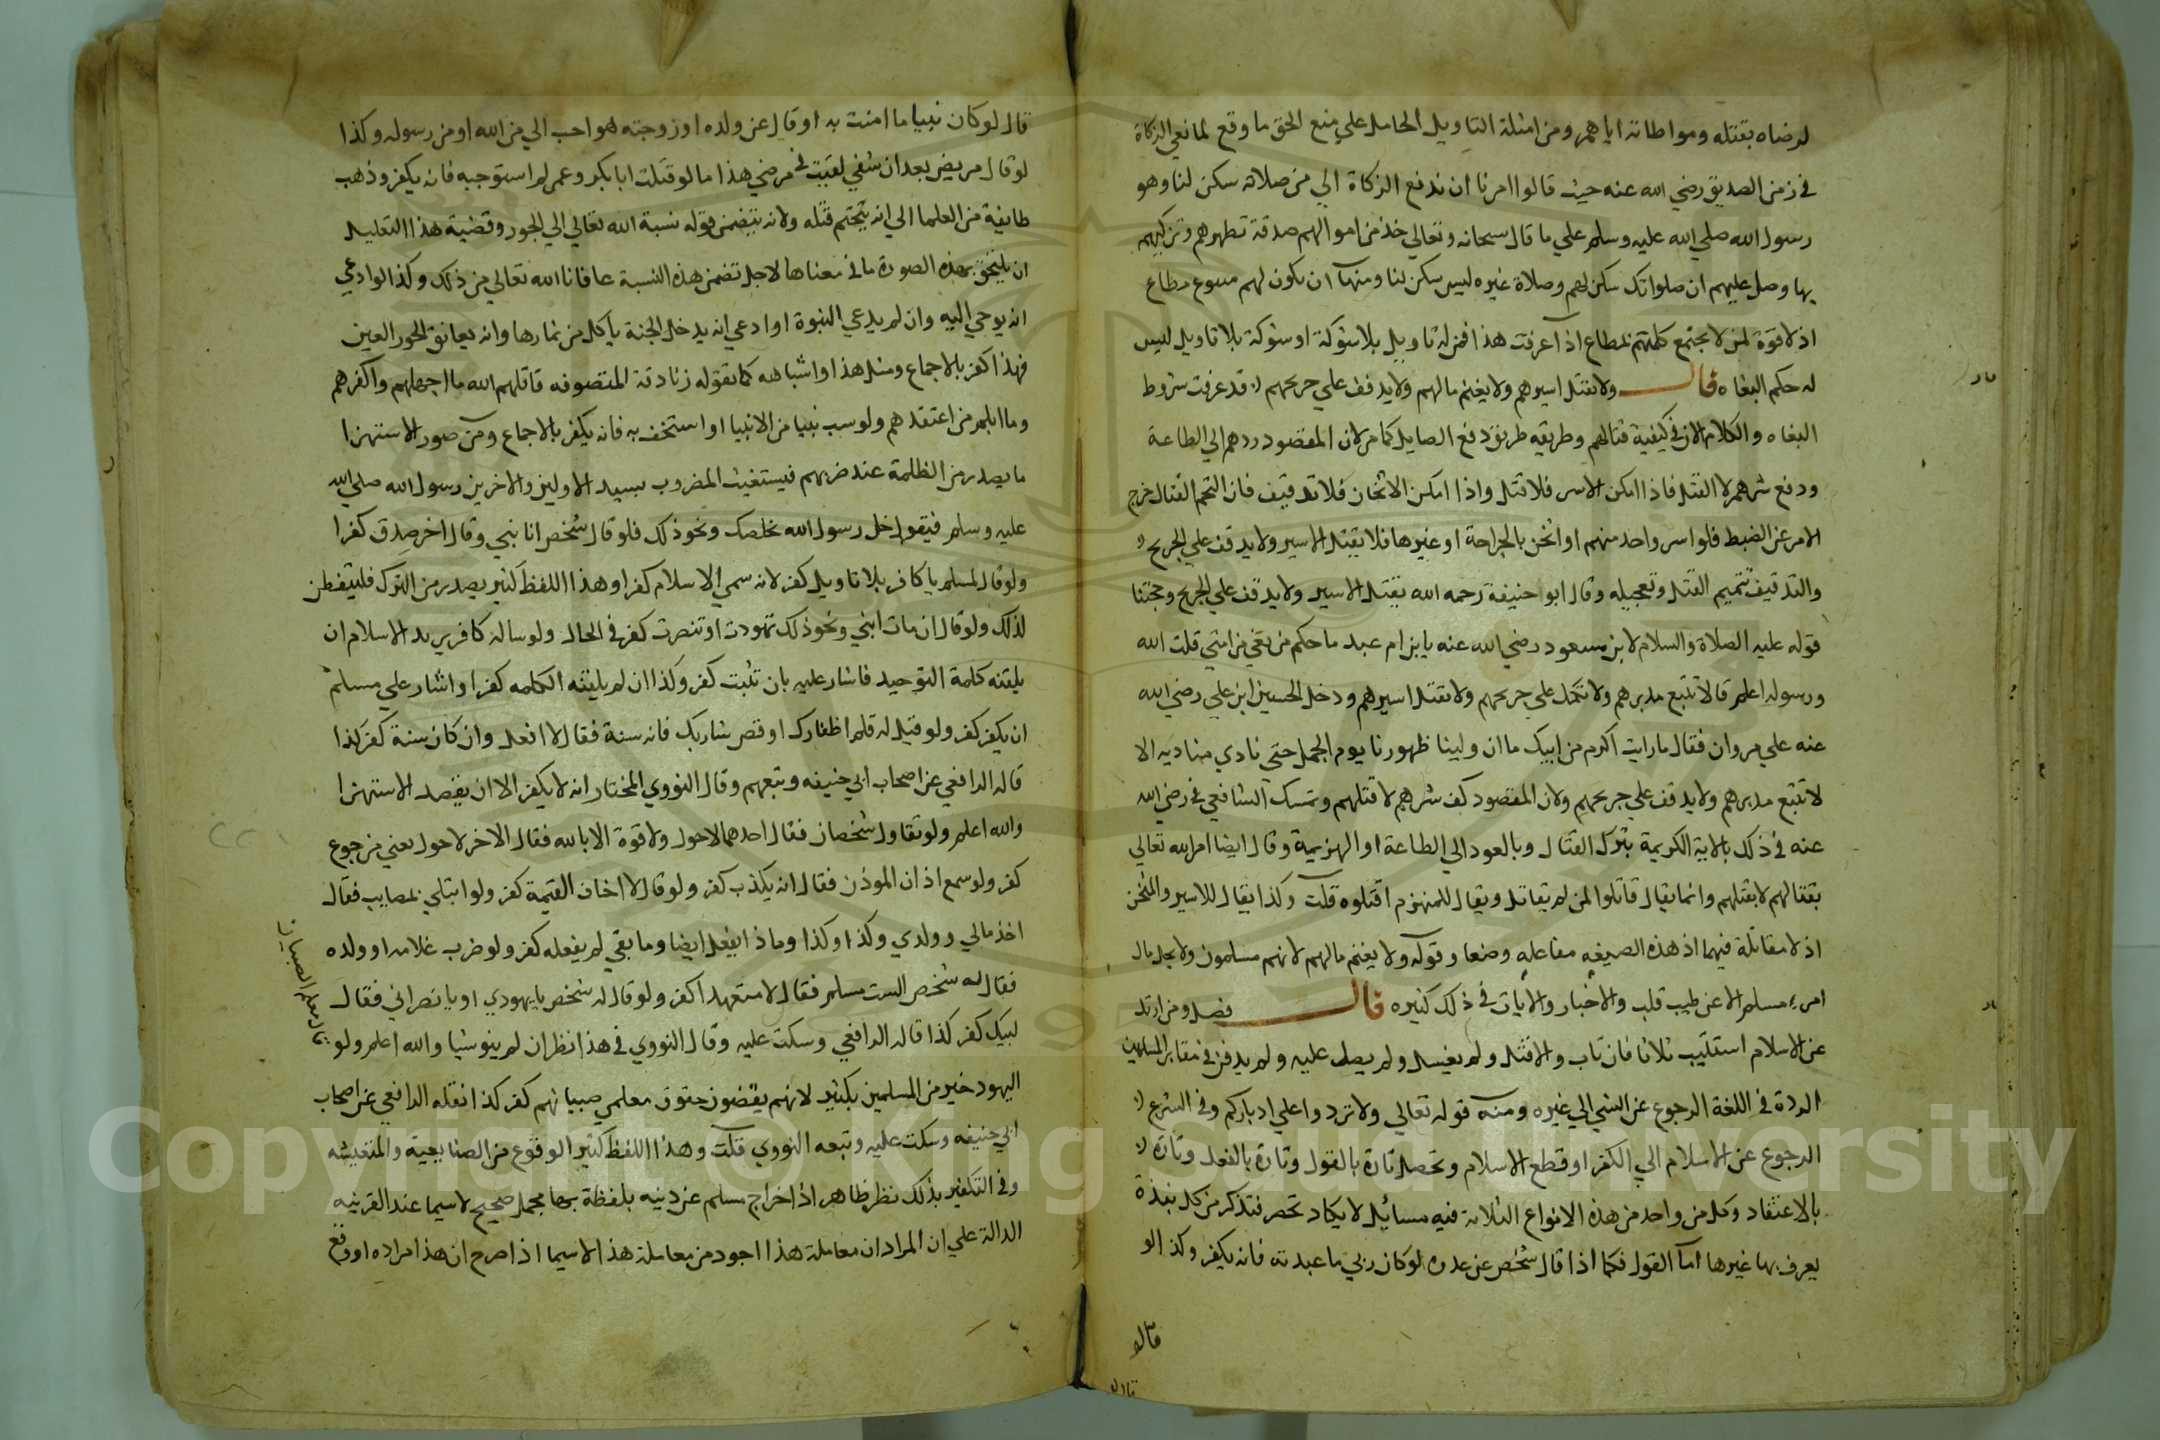 لرضاه بقتله ومواطاته اياهم ومن امثلة التاويل الحامل علي منع الحق ما وقع لمانعي الزكاة
في زمن الصديق رضي الله عنه حيث قالوا امرنا ان ندفع الزكاة الي من صلاته سكن لنا وهو
رسول الله صلي الله عليه وسلم علي ما قال سبحانه وتعالي خذ من اموالهم صدقة تطهرهم وتزكيهم
بها وصل عليهم ان صلواتك سكن لهم وصلاة غيره ليس سكن لنا ومنها ان يكون لهم متبوع مطاع
اذ لا قوة لمن لا يجتمع كلمتهم لمطاع اذا عرفت هذا فمن له تاويل بلا شوكة او شوكة بلا تاويل ليس
له حكم البغاه قال ولا يقتل اسيرهم ولا يغنم مالهم ولا يدفف علي جريحهم قد عرفت شروط
البغاه والكلام الان في كيفية قتالهم وطريقه طريق دفع الصايل كما مر لان المقصود ردهم الي الطاعة
ودفع شرهم لا القتل فاذا امكن الاسر فلا قتل واذا امكن الاثخان فلا تدفيف فان التحم القتال خرج
الامر عن الضبط فلو اسر واحد منهم او اثخن بالجراحة او غيرها فلا يقتل الاسير ولا يدفف علي الجريح
والتدفيف تتميم القتل وتعجيله وقال ابو حنيفة رحمه الله يقتل الاسير ولا يدفف علي الجريح وحجتنا
قوله عليه الصلاة والسلام لابن مسعود رضي الله عنه يا بن ام عبد ما حكم من بغي من امتي قلت الله
ورسوله اعلم قال لا تتبع مدبرهم ولا تحمل علي جريحهم ولا تقتل اسيرهم ودخل الحسين ابن علي رضي الله
عنه علي مروان فقال ما رايت اكرم من ابيك ما ان ولينا ظهورنا يوم الجمل حتي نادي مناديه الا
لا تتبع مدبرهم ولا يدفف علي جريحهم ولان المقصود كف شرهم لا قتلهم وتمسك الشافعي رضي الله
عنه في ذلك بالاية الكريمة بترك القتال وبالعود الي الطاعة او الهزيمة وقال ايضا امر الله تعالي
بقتالهم لا بقتلهم وانما يقال قاتلوا لمن لم يقاتل ويقال للمنهزم اقتلوه قلت وكذا يقال للاسير والمثخن
اذ لا مقاتلة فيهما اذ هذه الصيغه مفاعله وضعا وقوله ولا يغنم مالهم لانهم مسلمون ولا يحل مال
امرء مسلم الا عن طيب قلب والاخبار والايات في ذلك كثيره قال فصل ومن ارتد
عن الاسلام استتيب ثلاثا فان تاب والا قتل ولم يغسل ولم يصل عليه ولم يدفن في مقابر المسلمين
الردة في اللغة الرجوع عن الشي الي غيره ومنه قوله تعالي ولا ترتدوا علي ادباركم وفي الشرع
الرجوع عن الاسلام الي الكفر او قطع الاسلام وتحصل تارة بالقول وتارة بالفعل وتارة
بالاعتقاد وكل من واحد من هذه الانواع الثلاثة فيه مسائل لا يكاد تحصر فتذكر من كل نبذة
يعرف بها غيرها اما القول فكما اذا قال شخص عن عدوه لو كان ربي ما عبدته فانه يكفر وكذا لو
قال لو
قال لو كان نبيا ما امنت به او قال عن ولده او زوجته هو احب الي من الله او من رسوله وكذا
لو قال مريض بعد ان شفي لقيت في مرضي هذا ما لو قتلت ابا بكر وعمر لم استوجبه فانه يكفر وذهب
طايفة من العلما الي انه يتحتم قتله ولانه يتضمن قوله نسبة الله تعالي الي الجور وقضية هذا التعليل
ان يلتحق بهذه الصورة ما في معناها لاجل تضمن هذه النسبة عافانا الله تعالي من ذلك وكذا لو ادعي
انه يوحي اليه وان لم يدعي النبوة او ادعي انه يدخل الجنة ياكل من ثمارها وانه يعانق الحور العين
فهذا كفر بالاجماع ومثل هذا واشباهه كما تقوله زنادقة المتصوفه قاتلهم الله ما اجهلهم واكفرهم
وما ابلم من اعتقدهم ولو سب نبيا من الانبيا او استخف به فانه يكفر بالاجماع ومن صور الاستهزا
ما يصدر من الظلمة عند ضربهم فيستغيث المضروب بسيد الاولين والاخرين رسول الله صلي الله
عليه وسلم فيقول خل رسول الله يخلصك ونحو ذلك فلو قال شخص انا نبي وقال اخر صدق كفرا
ولو قال لمسلم يا كافر بلا تاويل كفر لانه سمي الاسلام كفرا وهذا اللفظ كثير يصدر من الترك فليتفطن
لذلك ولو قال ان مات ابني ونحو ذلك تهودت او تنصرت كفر في الحال ولو ساله كافر يريد الاسلام ان
يلقنه كلمة التوحيد فاشار عليه بان تثبت كفر وكذا ان لم يلقنه الكلمه كفر او اشار علي مسلم
ان يكفر كفر ولو قيل له قلم اظفارك او قص شاربك فانه سنة فقال لا افعل وان كان سنة كفر كذا
قاله الرافعي عن اصحاب ابي حنيفه وتبعهم وقال النووي المختار انه لا يكفر الا ان يقصد الاستهزا
والله اعلم ولو تقاول شخصان فقال احدهما لا حول ولا قوة الا بالله فقال الاخر لا حول يغني من جوع
كفر ولو سمع اذان الموذن فقال انه يكذب كفر ولو قال لا اخاف القيمة كفر ولو ابتلي بمصايب فقال
اخذ مالي وولدي وكذا وكذا وماذا يفعل ايضا وما بقي لم يفعله كفر ولو ضرب غلامه او ولده
فقال له شخص الست مسلم فقال لا متعهدا كفر ولو قال له شخص يا يهودي او يا نصراني فقال
لبيك كفر كذا قاله الرافعي وسكت عليه وقال النووي في هذا نظر ان لم ينو شيا والله اعلم ولو
قال معلم الصبيان
اليهود خير من المسلمين بكثير لانهم يقضون حقوق معلمي صبيانهم كفر كذا نقله الرافعي عن اصحاب
ابي حنيفه وسكت عليه وتبعه النووي قلت وهذا اللفظ كثير الوقوع من الصنايعية والمتعيشه
وفي التكفير بذلك نظر ظاهر اذ اخراج مسلم عن دينه بلفظة بها محمل صحيح لا سيما عند القرينه
الدالة علي ان المراد ان معاملة هذا اجود من معاملة هذا لا سيما اذا صرح ان هذا مراده او وقع
Copyright © King Saud University